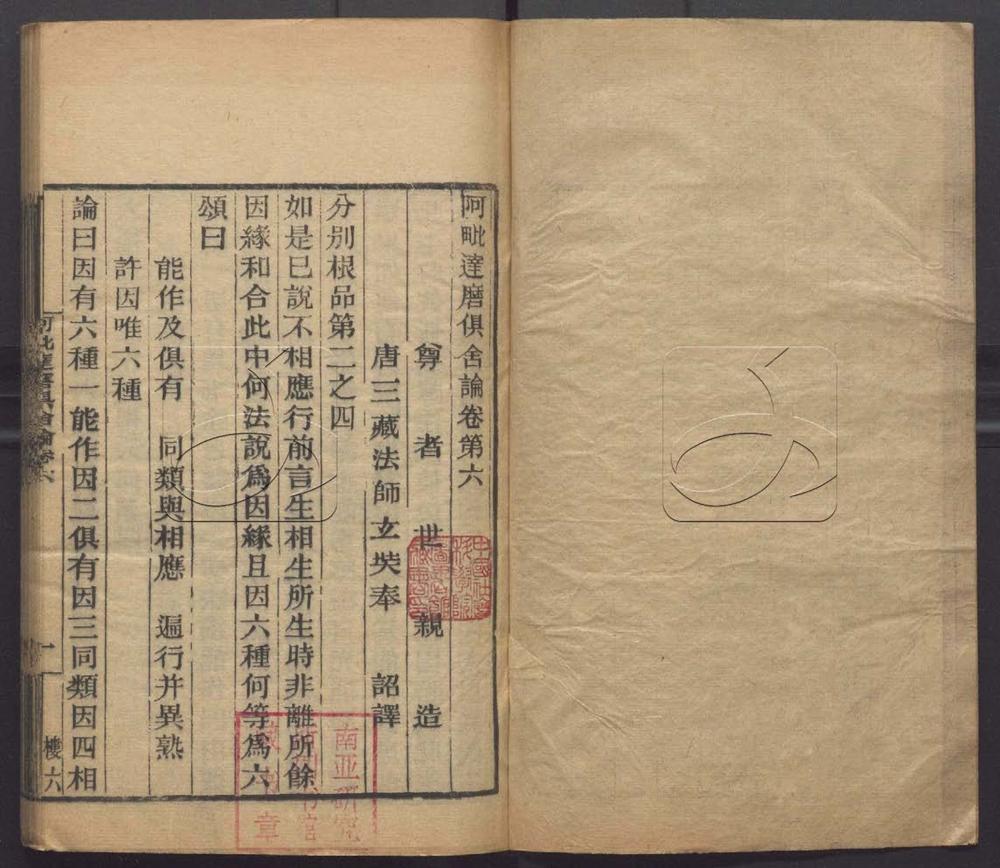 阿毗達磨俱舍論卷第六
尊者世親造
唐三藏法師玄奘奉 詔譯
分別根品第二之四
如是已說不相應行前言生相生所生時非離所餘
因緣和合此中何法說爲因緣且因六種何等爲六
頌曰
能作及俱有 同類與相應 遍行并異熟
許因唯六種
論曰因有六種一能作因二俱有因三同類因四相
阿毗達磨俱舍論卷六 一 樓六
南亚研究
所图书馆
藏书章